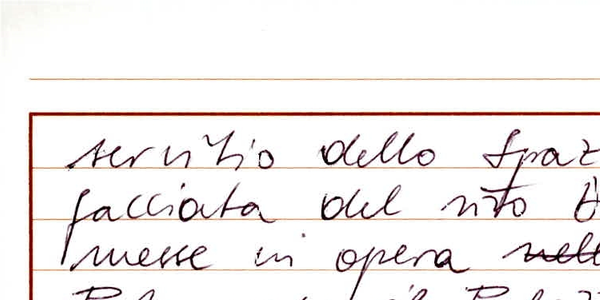 servizio dello Spaz
facciata del sito
messe in opera